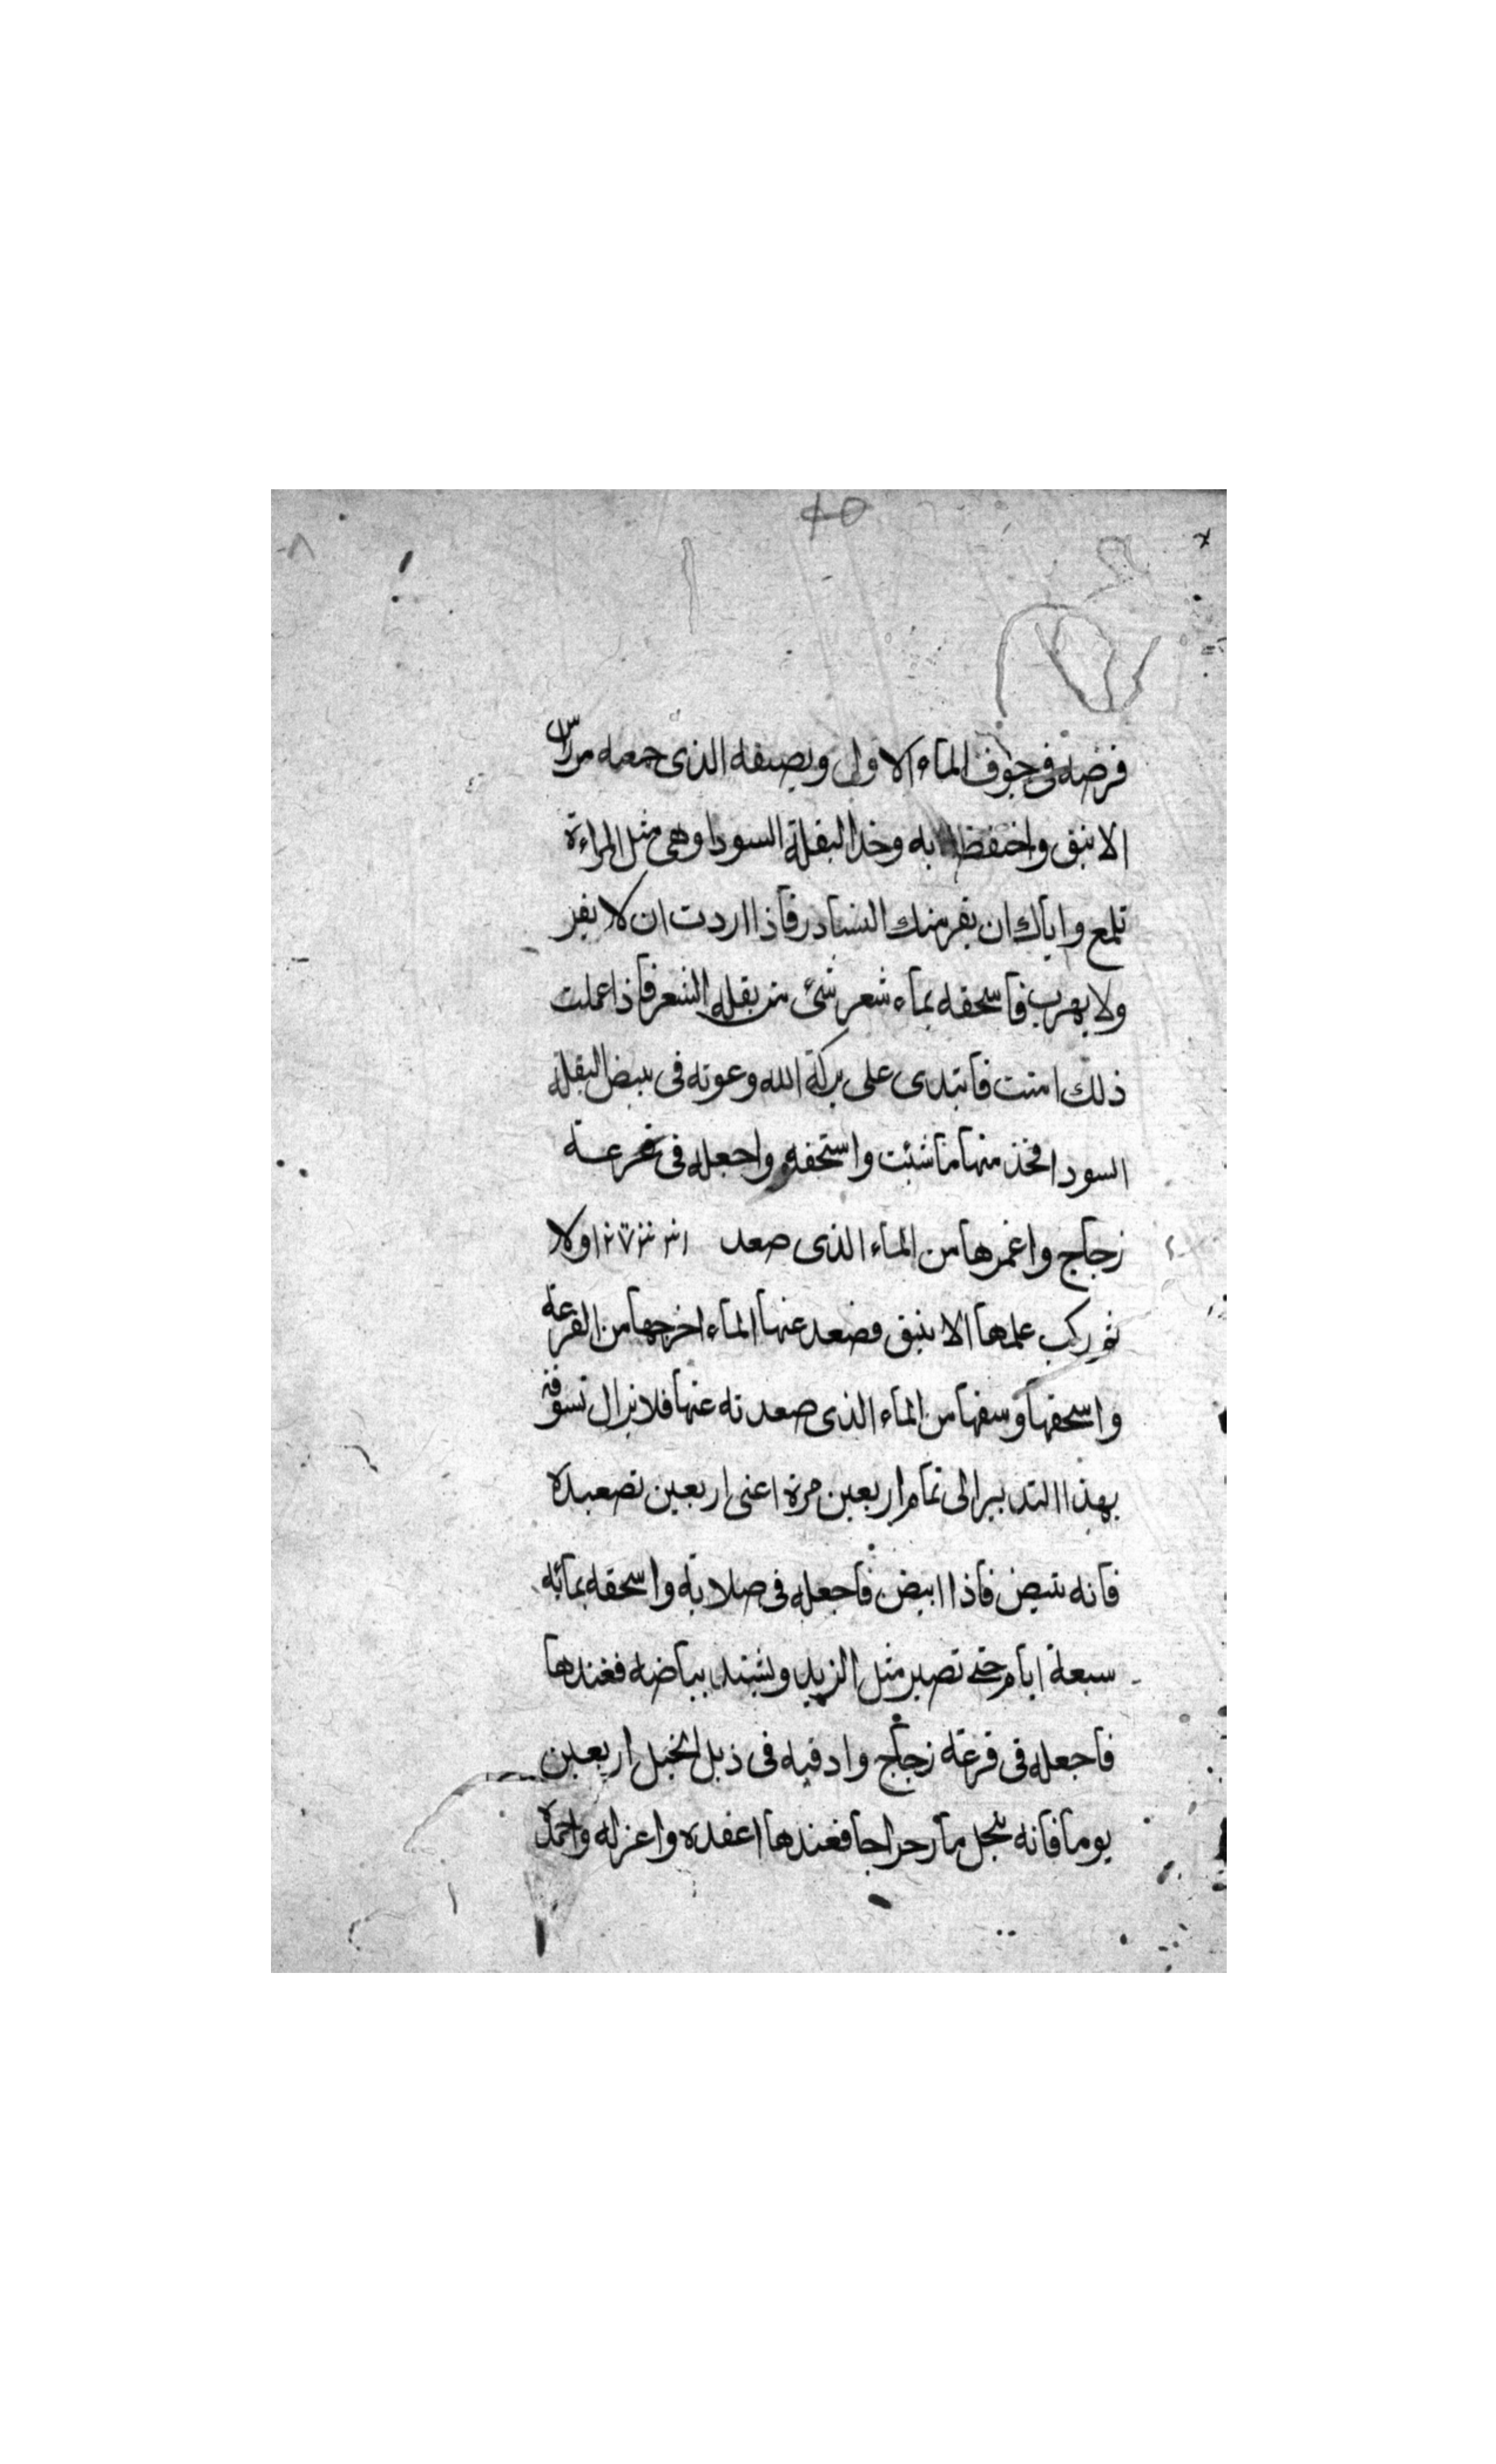 فرضه فى جوف الماء الاول ويصيفه الذى جمعه من راس
الانبق واحتفظ به وخذ البقلة السودا وهى مثل المراءة
تلمع واياك ان يفر منك النشادر فاذا اردت ان لا يفر
ولا يهرب فاسحقه بماء شعر شئ من بقله الشعر فاذا عملت
ذلك امنت فابتدى على بركة الله وعونه فى تبيض البقلة
السودا فخذ منها ما شئت واسحقه واجعله فى قرعة
زجاج واغمرها من الماء الذى صعد اولا
ثم ركب عليها الانبيق فصعد عنها الماء اخرجها من القرعة
واسحقها وسقها من الماء الذى صعدته عنها فلا تزال تسوقه
بهذا التدبير الى تمام اربعين مرة اعنى اربعين تصعيده
فانه يتبيض فاذا ابيض فاجعله فى صلابه واسحقه بمائه
سبعة ايام حتى تصير مثل الزبد ويشتد بياضه فعندها
فاجعله فى قرعة زجاج وادفنه فى ذبل الخيل اربعين
يوما فانه ينحل ما رجراجا فعندها اعقده واعزله واحمد